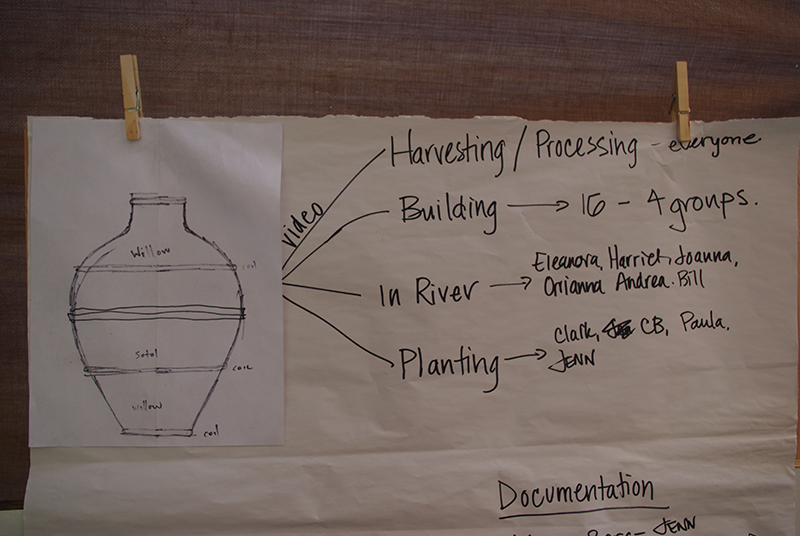 Willow
coil
Sotol
coil
willow
coil
video
Harvesting / Processing - everyone
Building → 16 - 4 groups.
In River → Eleanora, Harriet, Joanna,
Orianna Andrea. Bill
Planting → Clark, CB, Paula,
JENN
Documentation
JENN